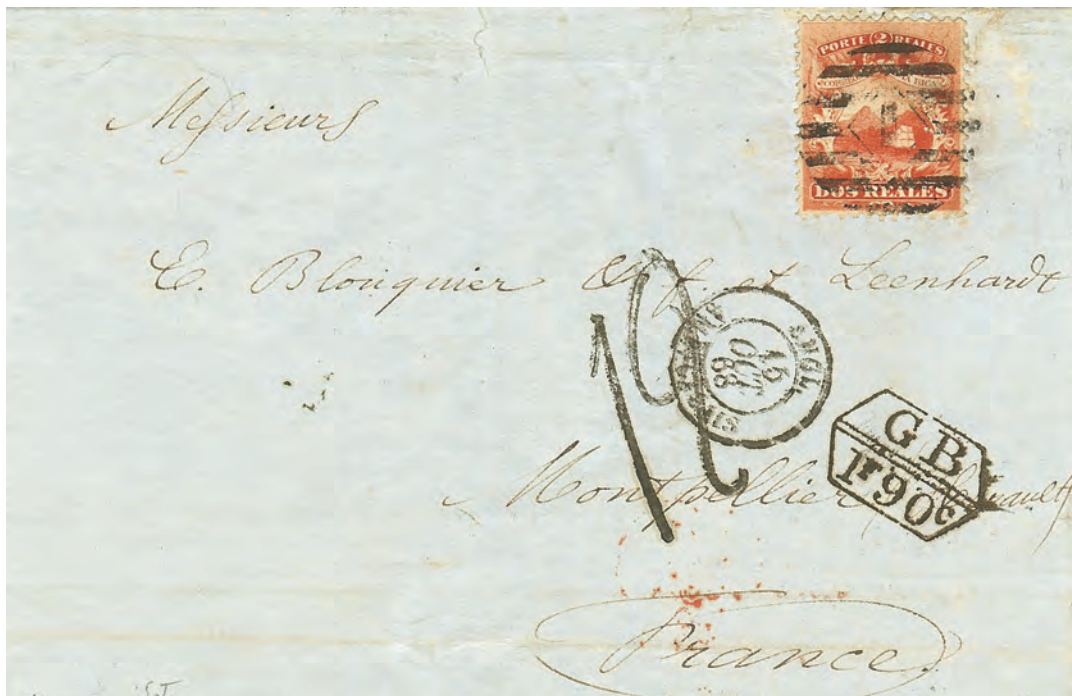 PORTE (2) REALES
DOS REALES
1
Messieurs
E. Blouquier & f. et Leenhardt
15
OCT
68
GB
1F90c
Montpellier
France